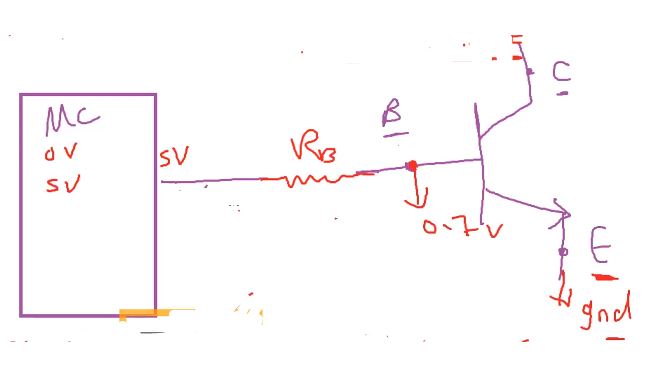 MC
0V
5V
5V
RB
B
0.7V
C
E
gnd